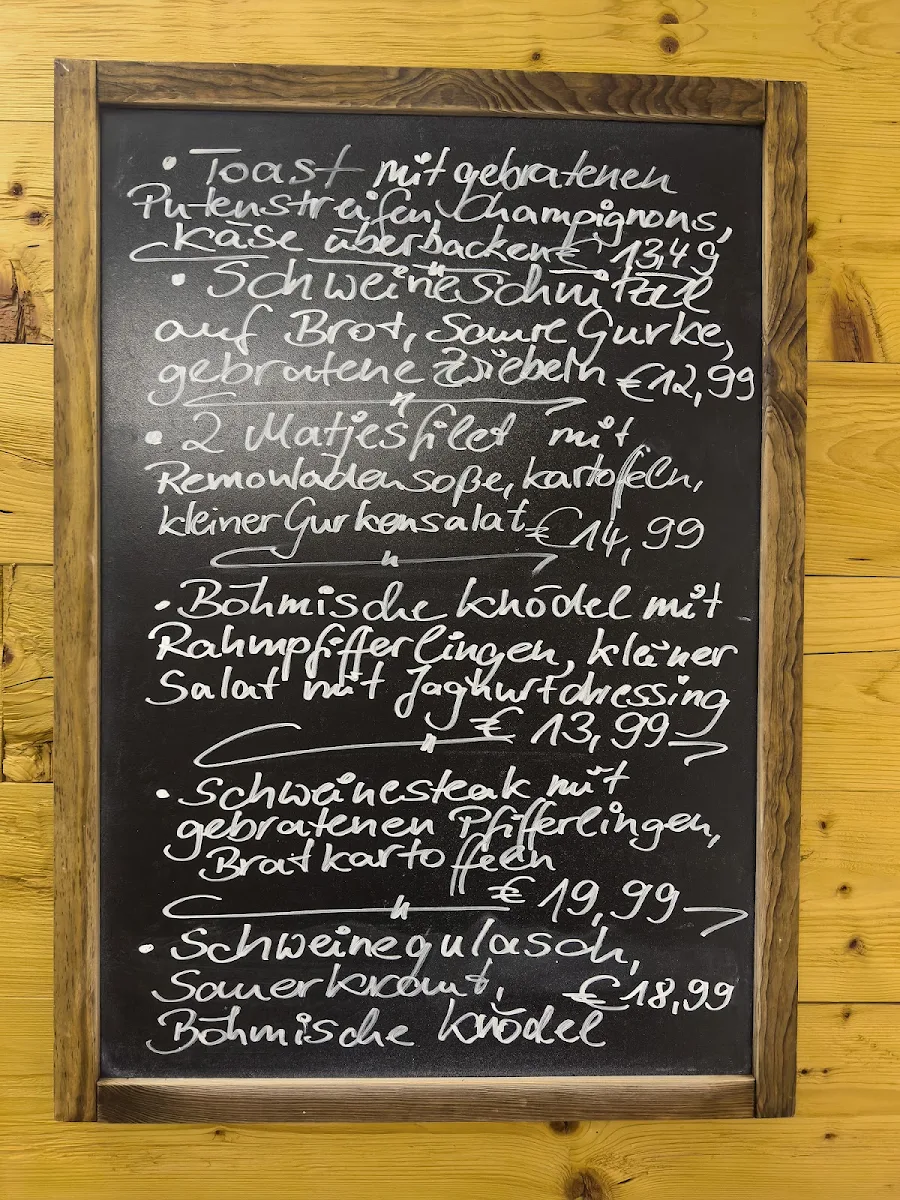 • Toast mit gebratenen
Putenstreifen, Champignons,
Käse überbacken € 13,49
• Schweineschnitzel
auf Brot, Saure Gurke,
gebratene Zwiebeln €12,99
• 2 Matjesfilet mit
Remouladensoße, kartoffeln,
kleiner Gurkensalat €14,99
• Böhmische Knödel mit
Rahmpfifferlingen, kleiner
Salat mit Jaghurtdressing
€ 13,99
• Schweinesteak mit
gebratenen Pfifferlingen,
Bratkartoffeln
€ 19,99
• Schweinegulasch,
Sauerkraut, €18,99
Böhmische Knödel